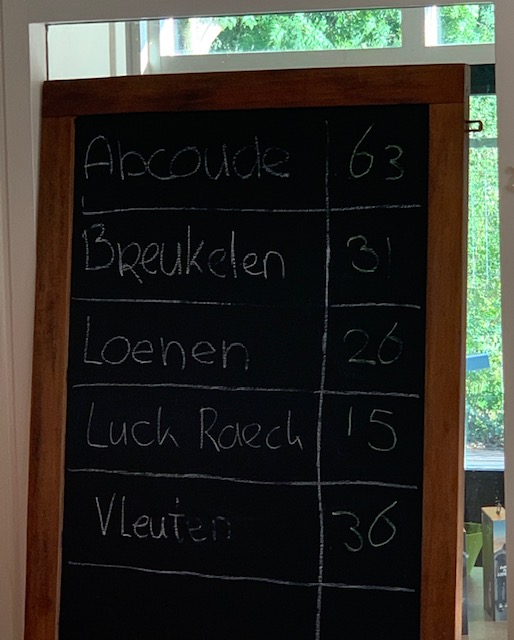 Abcoude 63
Breukelen 31
Loenen 26
Luck Raeck 15
Vleuten 36